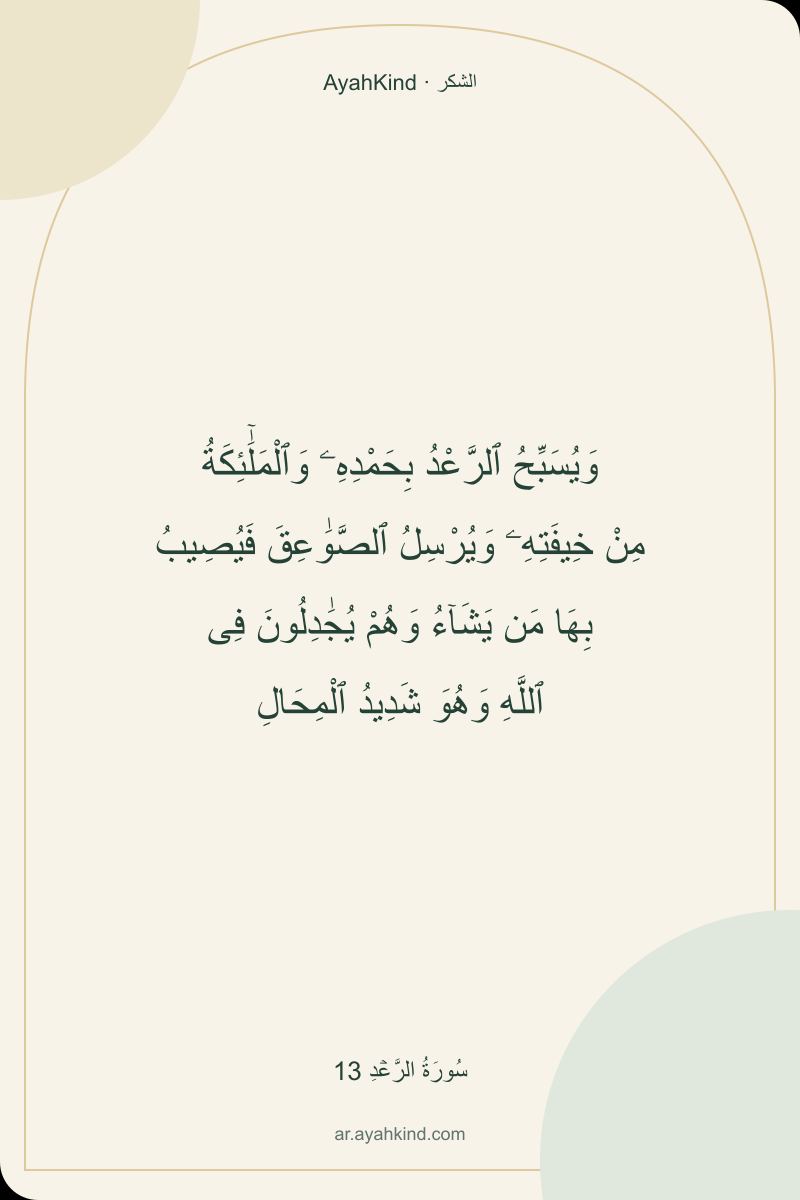 AyahKind · الشكر
وَيُسَبِّحُ ٱلرَّعْدُ بِحَمْدِهِۦ وَٱلْمَلَٰٓئِكَةُ
مِنْ خِيفَتِهِۦ وَيُرْسِلُ ٱلصَّوَٰعِقَ فَيُصِيبُ
بِهَا مَن يَشَآءُ وَهُمْ يُجَٰدِلُونَ فِى
ٱللَّهِ وَهُوَ شَدِيدُ ٱلْمِحَالِ
سُورَةُ الرَّعۡدِ 13
ar.ayahkind.com